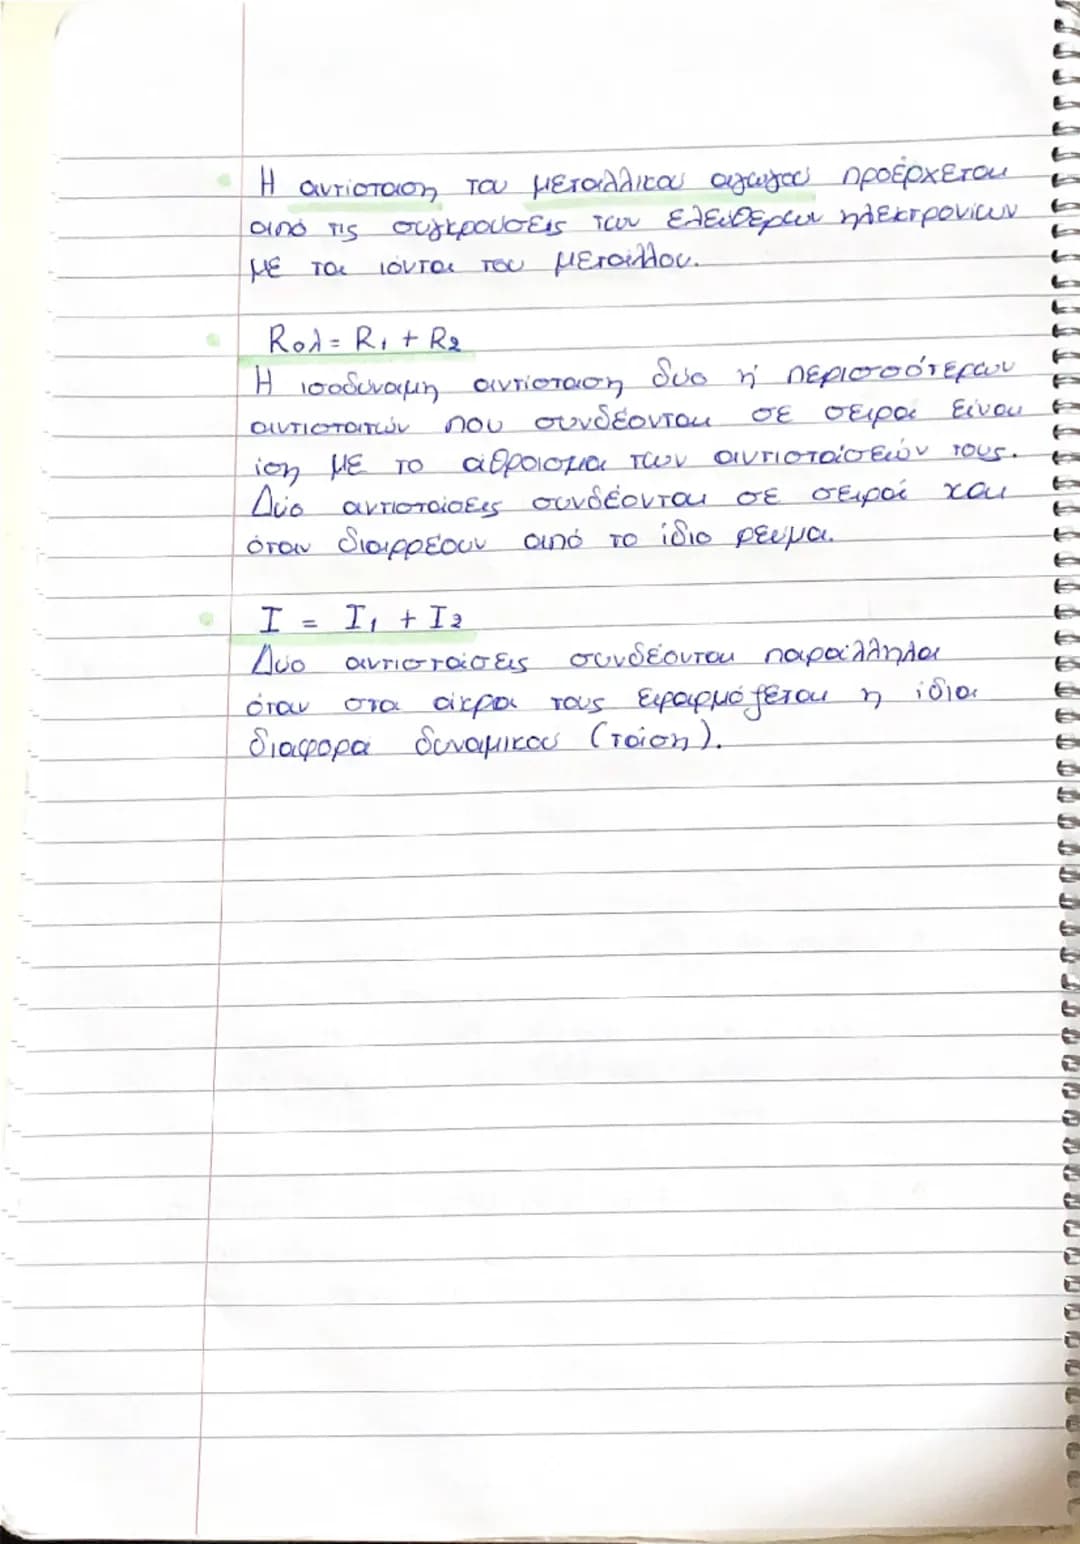 Η αντίσταση του μεταλλικού αγωγού προέρχεται
από τις συγκρούσεις των ελεύθερων ηλεκτρονίων
με τα ιόντα του μετάλλου.
Rολ = R1 + R2
Η ισοδύναμη αντίσταση δύο ή περισσότερων
αντιστατών που συνδέονται σε σειρά είναι
ίση με το άθροισμα των αντιστάσεών τους.
Δύο αντιστάσεις συνδέονται σε σειρά και
όταν διαρρέουν από το ίδιο ρεύμα.
I = I1 + I2
Δύο αντιστάσεις συνδέονται παράλληλα
όταν στα άκρα τους εφαρμόζεται η ίδια
διαφορά δυναμικού (τάση).